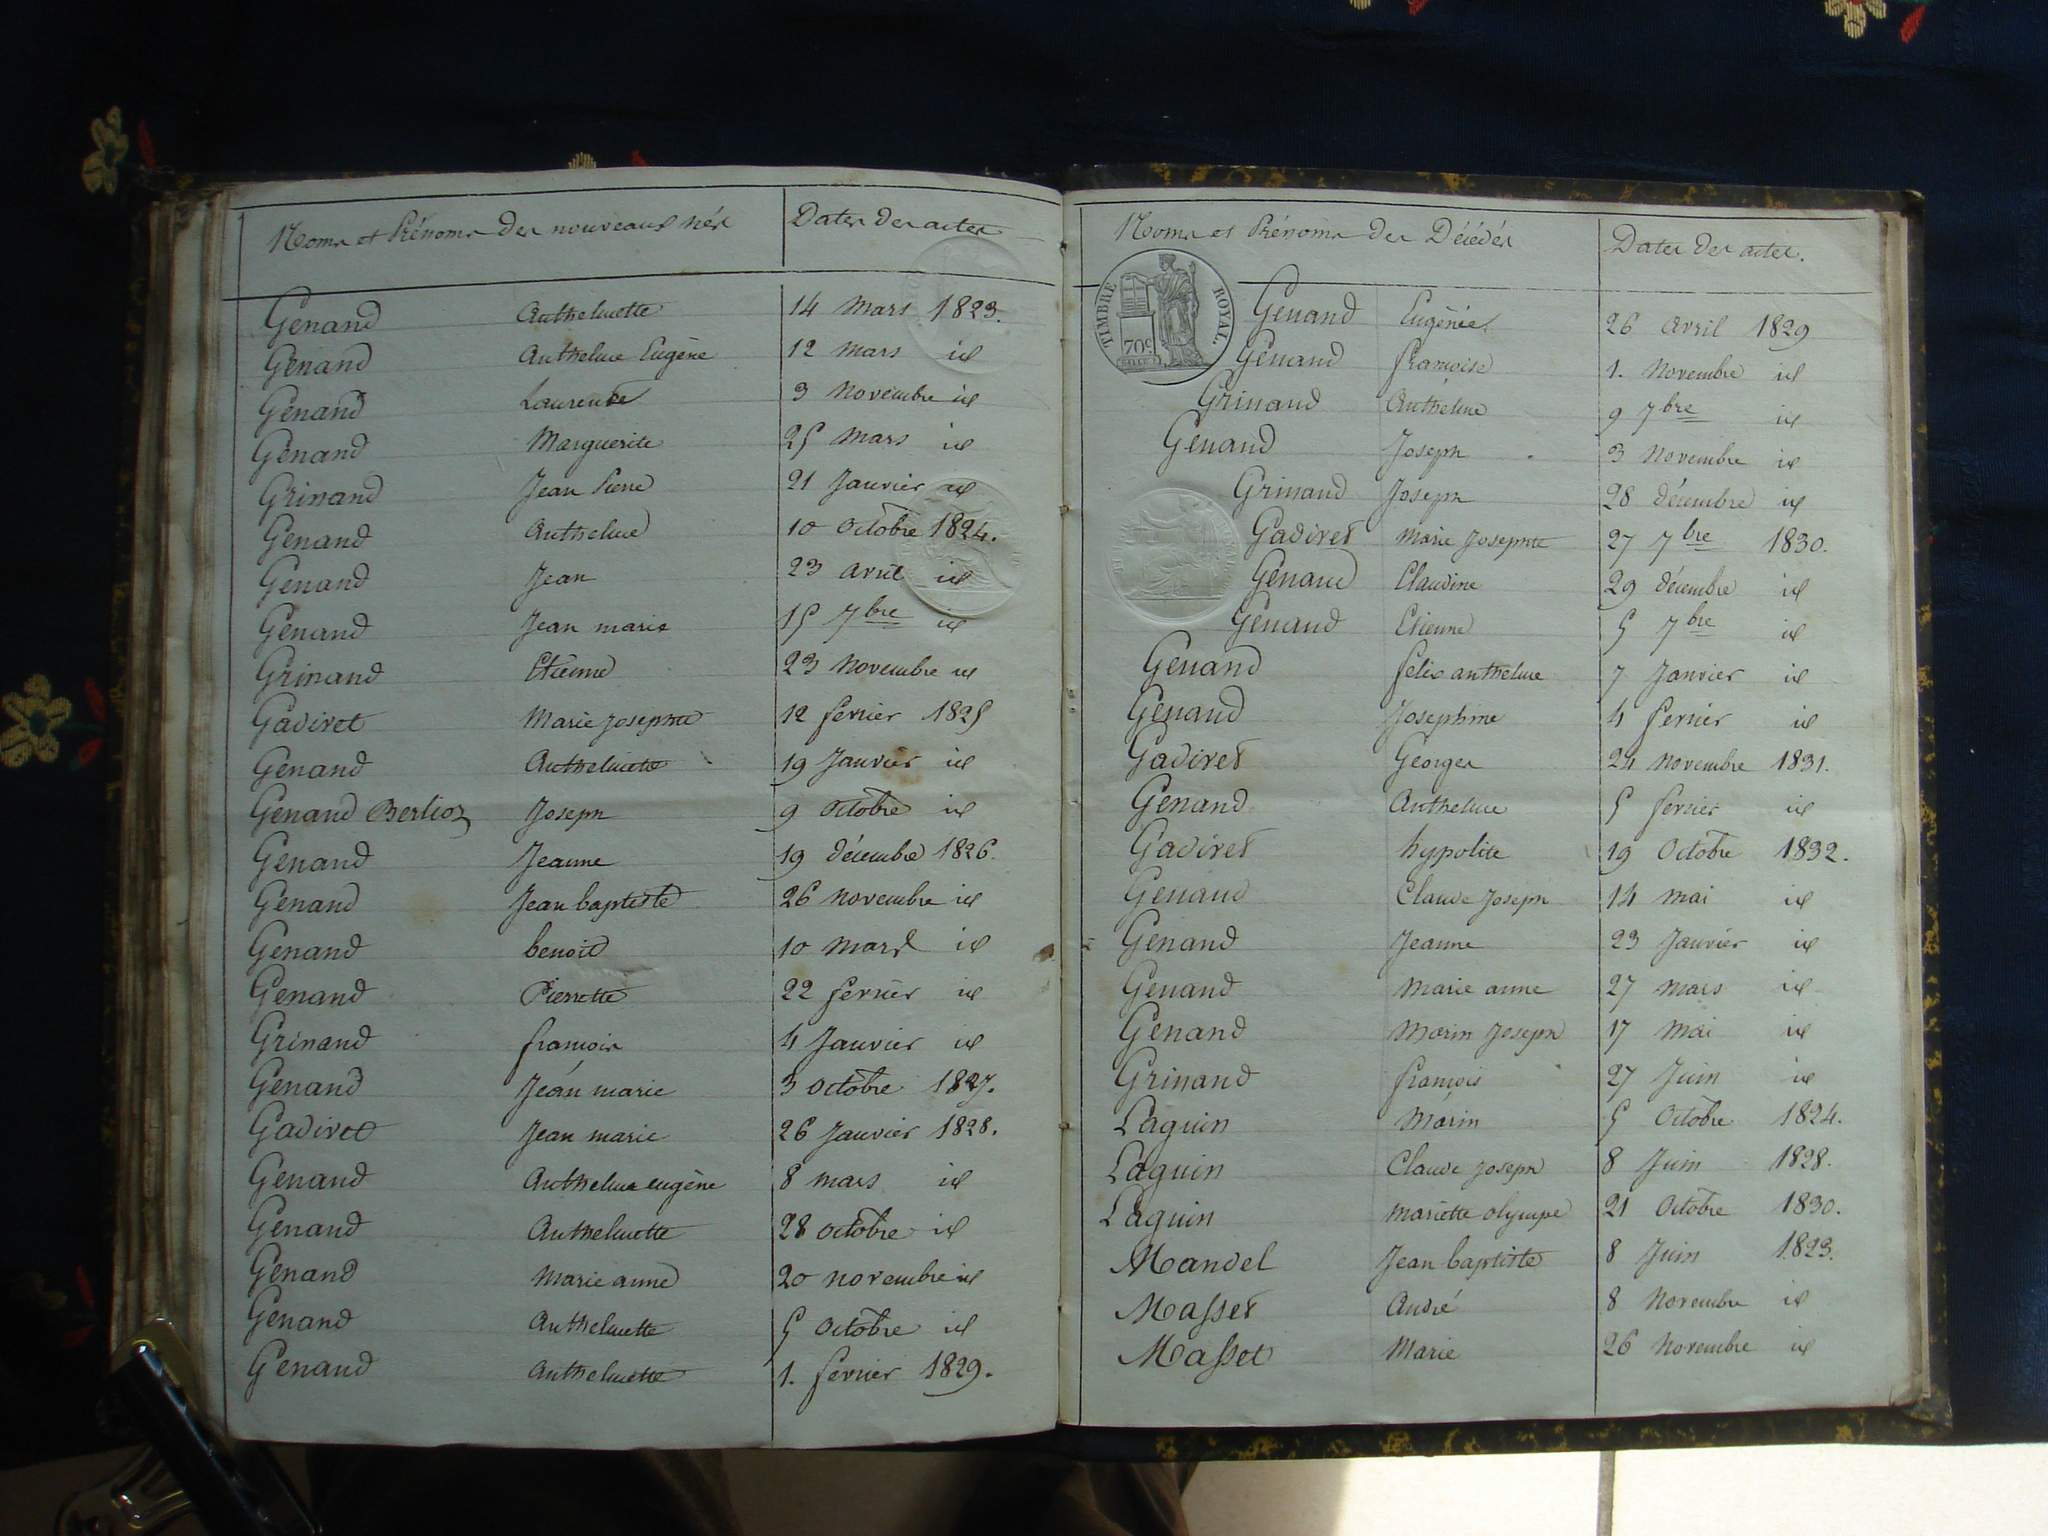 Noms et Prénoms des nouveaux nés Dates des actes
Genand Anthelmette 14 mars 1823.
Genand Anthelme Eugène 12 mars id
Genand Laurence 3 novembre id
Genand Marguerite 25 mars id
Grinand Jean Pierre 21 Janvier id
Genand Anthelme 10 octobre 1824.
Genand Jean 23 avril id
Genand Jean marie 15 7bre id
Grinand Etienne 23 novembre id
Gadivet Marie Josephte 12 fevrier 1825
Genand Anthelmette 19 Janvier id
Genand Berlioz Joseph 9 octobre id
Genand Jeanne 19 décembre 1826.
Genand Jean baptiste 26 novembre id
Genand benoit 10 mars id
Genand Pierrette 22 fevrier id
Grinand françois 4 Janvier id
Genand Jean marie 3 octobre 1827.
Gadivet Jean marie 26 Janvier 1828.
Genand Anthelme eugène 8 mars id
Genand Anthelmette 28 octobre id
Genand Marie anne 20 novembre id
Genand Anthelmette 5 octobre id
Genand Anthelmette 1. fevrier 1829.
Noms et Prénoms des Décédés Dates des actes.
TIMBRE ROYAL
70c
Genand Eugénie 26 avril 1829
Genand françoise 1. Novembre id
Grinand Anthelme 9 7bre id
Genand Joseph 3 Novembre id
Grinand Joseph 28 décembre id
Gadivet Marie Josephte 27 7bre 1830.
Genand Claudine 29 décembre id
Genand Etienne 5 7bre id
Genand felix anthelme 7 Janvier id
Genand Josephine 4 fevrier id
Gadivet Georges 24 novembre 1831.
Genand Anthelme 5 fevrier id
Gadivet hypolite 19 Octobre 1832.
Genand Claude Joseph 14 mai id
Genand Jeanne 23 Janvier id
Genand Marie anne 27 mars id
Genand Marin Joseph 17 mai id
Grinand françois 27 Juin id
Laguin Marin 5 Octobre 1824.
Laguin Claude Joseph 8 Juin 1828.
Laguin Mariette olympe 21 Octobre 1830.
Mandel Jean baptiste 8 Juin 1823.
Masset André 8 Novembre id
Masset Marie 26 Novembre id